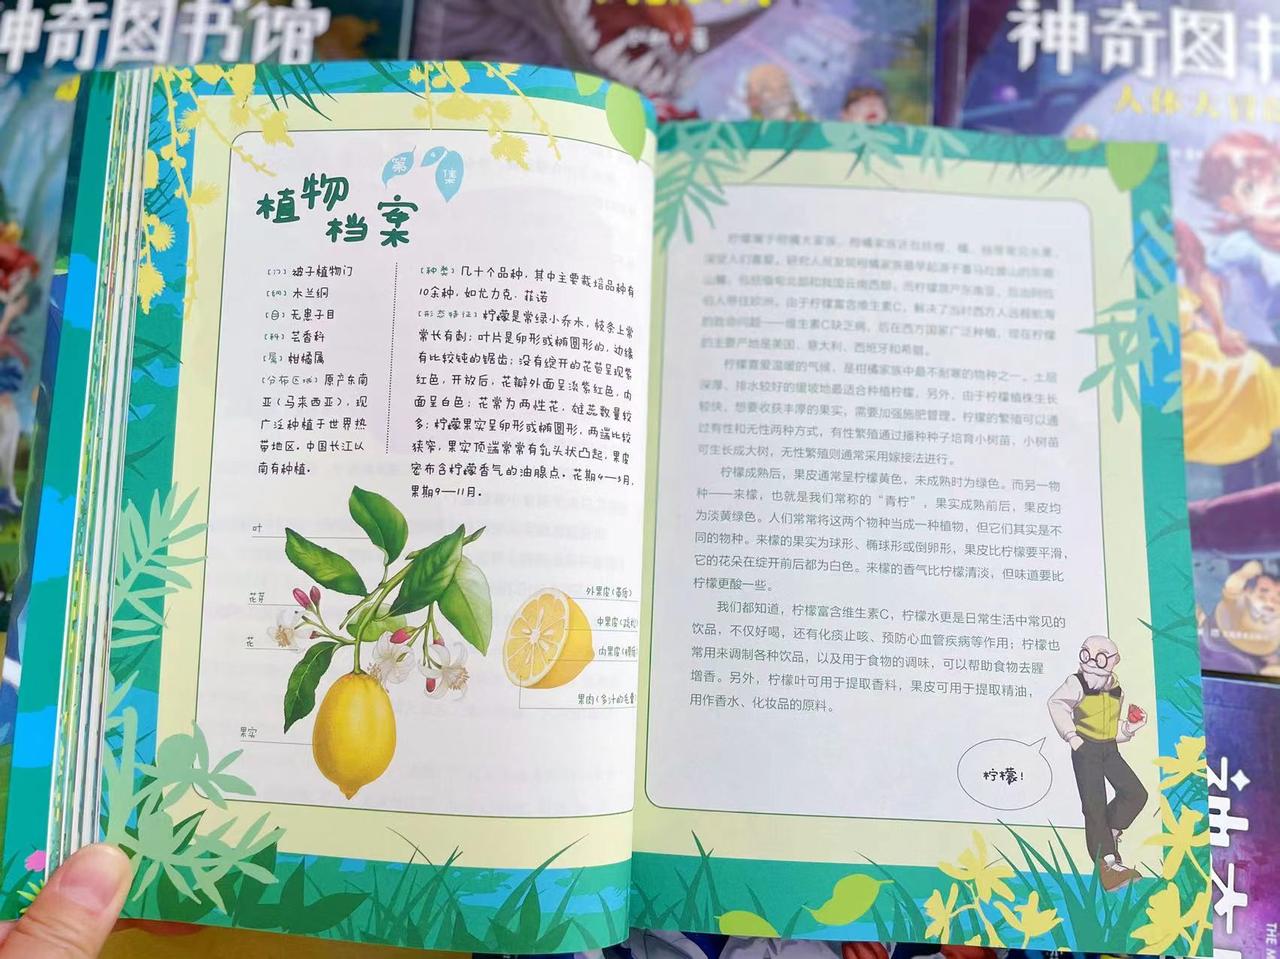 神奇图书馆
神奇图书
人体大冒
第4集
植物
档案
[门] 被子植物门
[纲] 木兰纲
[目] 无患子目
[科] 芸香科
[属] 柑橘属
[分布区域] 原产东南
亚(马来西亚),现
广泛种植于世界热
带地区。中国长江以
南有种植。
[种类] 几十个品种,其中主要栽培品种有
10余种,如尤力克、菲诺
[形态特征] 柠檬是常绿小乔木,枝条上常
常长有刺;叶片是卵形或椭圆形的,边缘
有比较钝的锯齿;没有绽开的花苞呈现紫
红色,开放后,花瓣外面呈淡紫红色,内
面呈白色;花常为两性花,雄蕊数量较
多;柠檬果实呈卵形或椭圆形,两端比较
狭窄,果实顶端常常有乳头状凸起,果皮
密布含柠檬香气的油腺点。花期4—5月,
果期9—11月。
叶
花芽
花
果实
外果皮(黄质)
中果皮
内果皮
果肉(多汁的毛囊
柠檬属于柑橘大家族,柑橘家族还包括橙、橘、柚等常见水果,
深受人们喜爱。研究人员发现柑橘家族最早起源于喜马拉雅山的东南
山麓,包括缅甸北部和我国云南西部。而柠檬原产东南亚,后由阿拉
伯人带往欧洲。由于柠檬富含维生素C,解决了当时西方人远程航海
的致命问题——维生素C缺乏病,后在西方国家广泛种植,现在柠檬
的主要产地是美国、意大利、西班牙和希腊。
柠檬喜爱温暖的气候,是柑橘家族中最不耐寒的物种之一。土层
深厚、排水较好的缓坡地最适合种植柠檬。另外,由于柠檬植株生长
较快,想要收获丰厚的果实,需要加强施肥管理。柠檬的繁殖可以通
过有性和无性两种方式,有性繁殖通过播种种子培育小树苗,小树苗
可生长成大树,无性繁殖则通常采用嫁接法进行。
柠檬成熟后,果皮通常呈柠檬黄色,未成熟时为绿色。而另一物
种——来檬,也就是我们常称的“青柠”,果实成熟前后,果皮均
为淡黄绿色。人们常常将这两个物种当成一种植物,但它们其实是不
同的物种。来檬的果实为球形、椭球形或倒卵形,果皮比柠檬要平滑,
它的花朵在绽开前后都为白色。来檬的香气比柠檬清淡,但味道要比
柠檬更酸一些。
我们都知道,柠檬富含维生素C,柠檬水更是日常生活中常见的
饮品,不仅好喝,还有化痰止咳、预防心血管疾病等作用;柠檬也
常用来调制各种饮品,以及用于食物的调味,可以帮助食物去腥
增香。另外,柠檬叶可用于提取香料,果皮可用于提取精油,
用作香水、化妆品的原料。
柠檬!
THE M